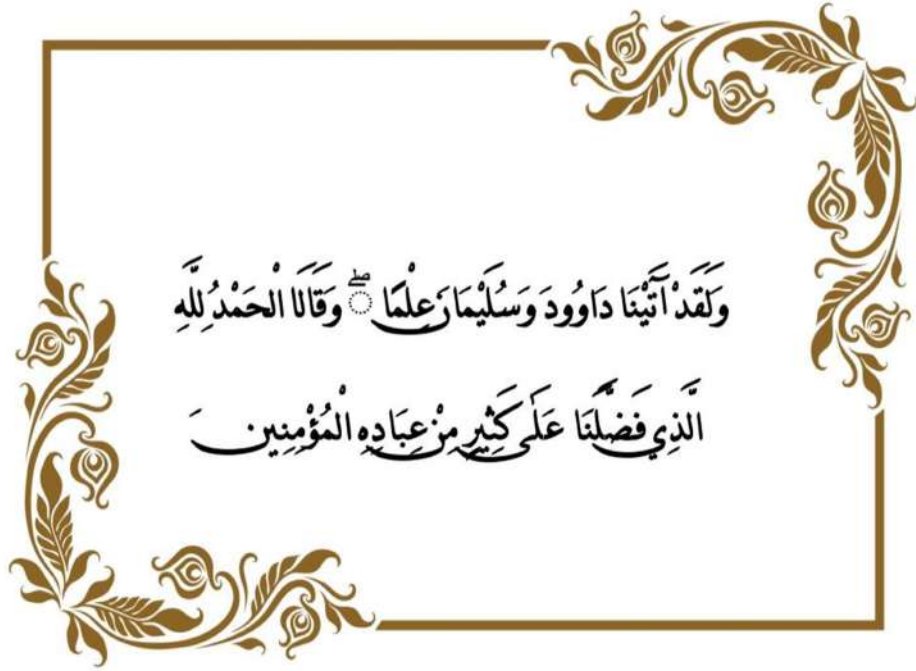 وَلَقَدْ آتَيْنَا دَاوُودَ وَسُلَيْمَانَ عِلْمًا ۖ وَقَالَا الْحَمْدُ لِلَّهِ
الَّذِي فَضَّلَنَا عَلَىٰ كَثِيرٍ مِنْ عِبَادِهِ الْمُؤْمِنِينَ